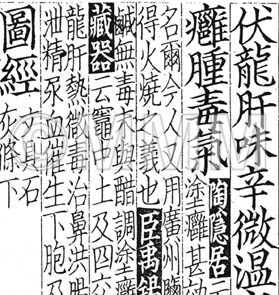 伏龍肝味辛微溫
癰腫毒氣
陶隱居
塗癰甚
名爾今人又用廣州鹽
得火燒之義也臣禹錫
鹹無毒與醋調塗
藏器云竈中土及四
龍肝熱微毒治鼻洪
泄精尿血催生下胞及
圖經
石
灰條下